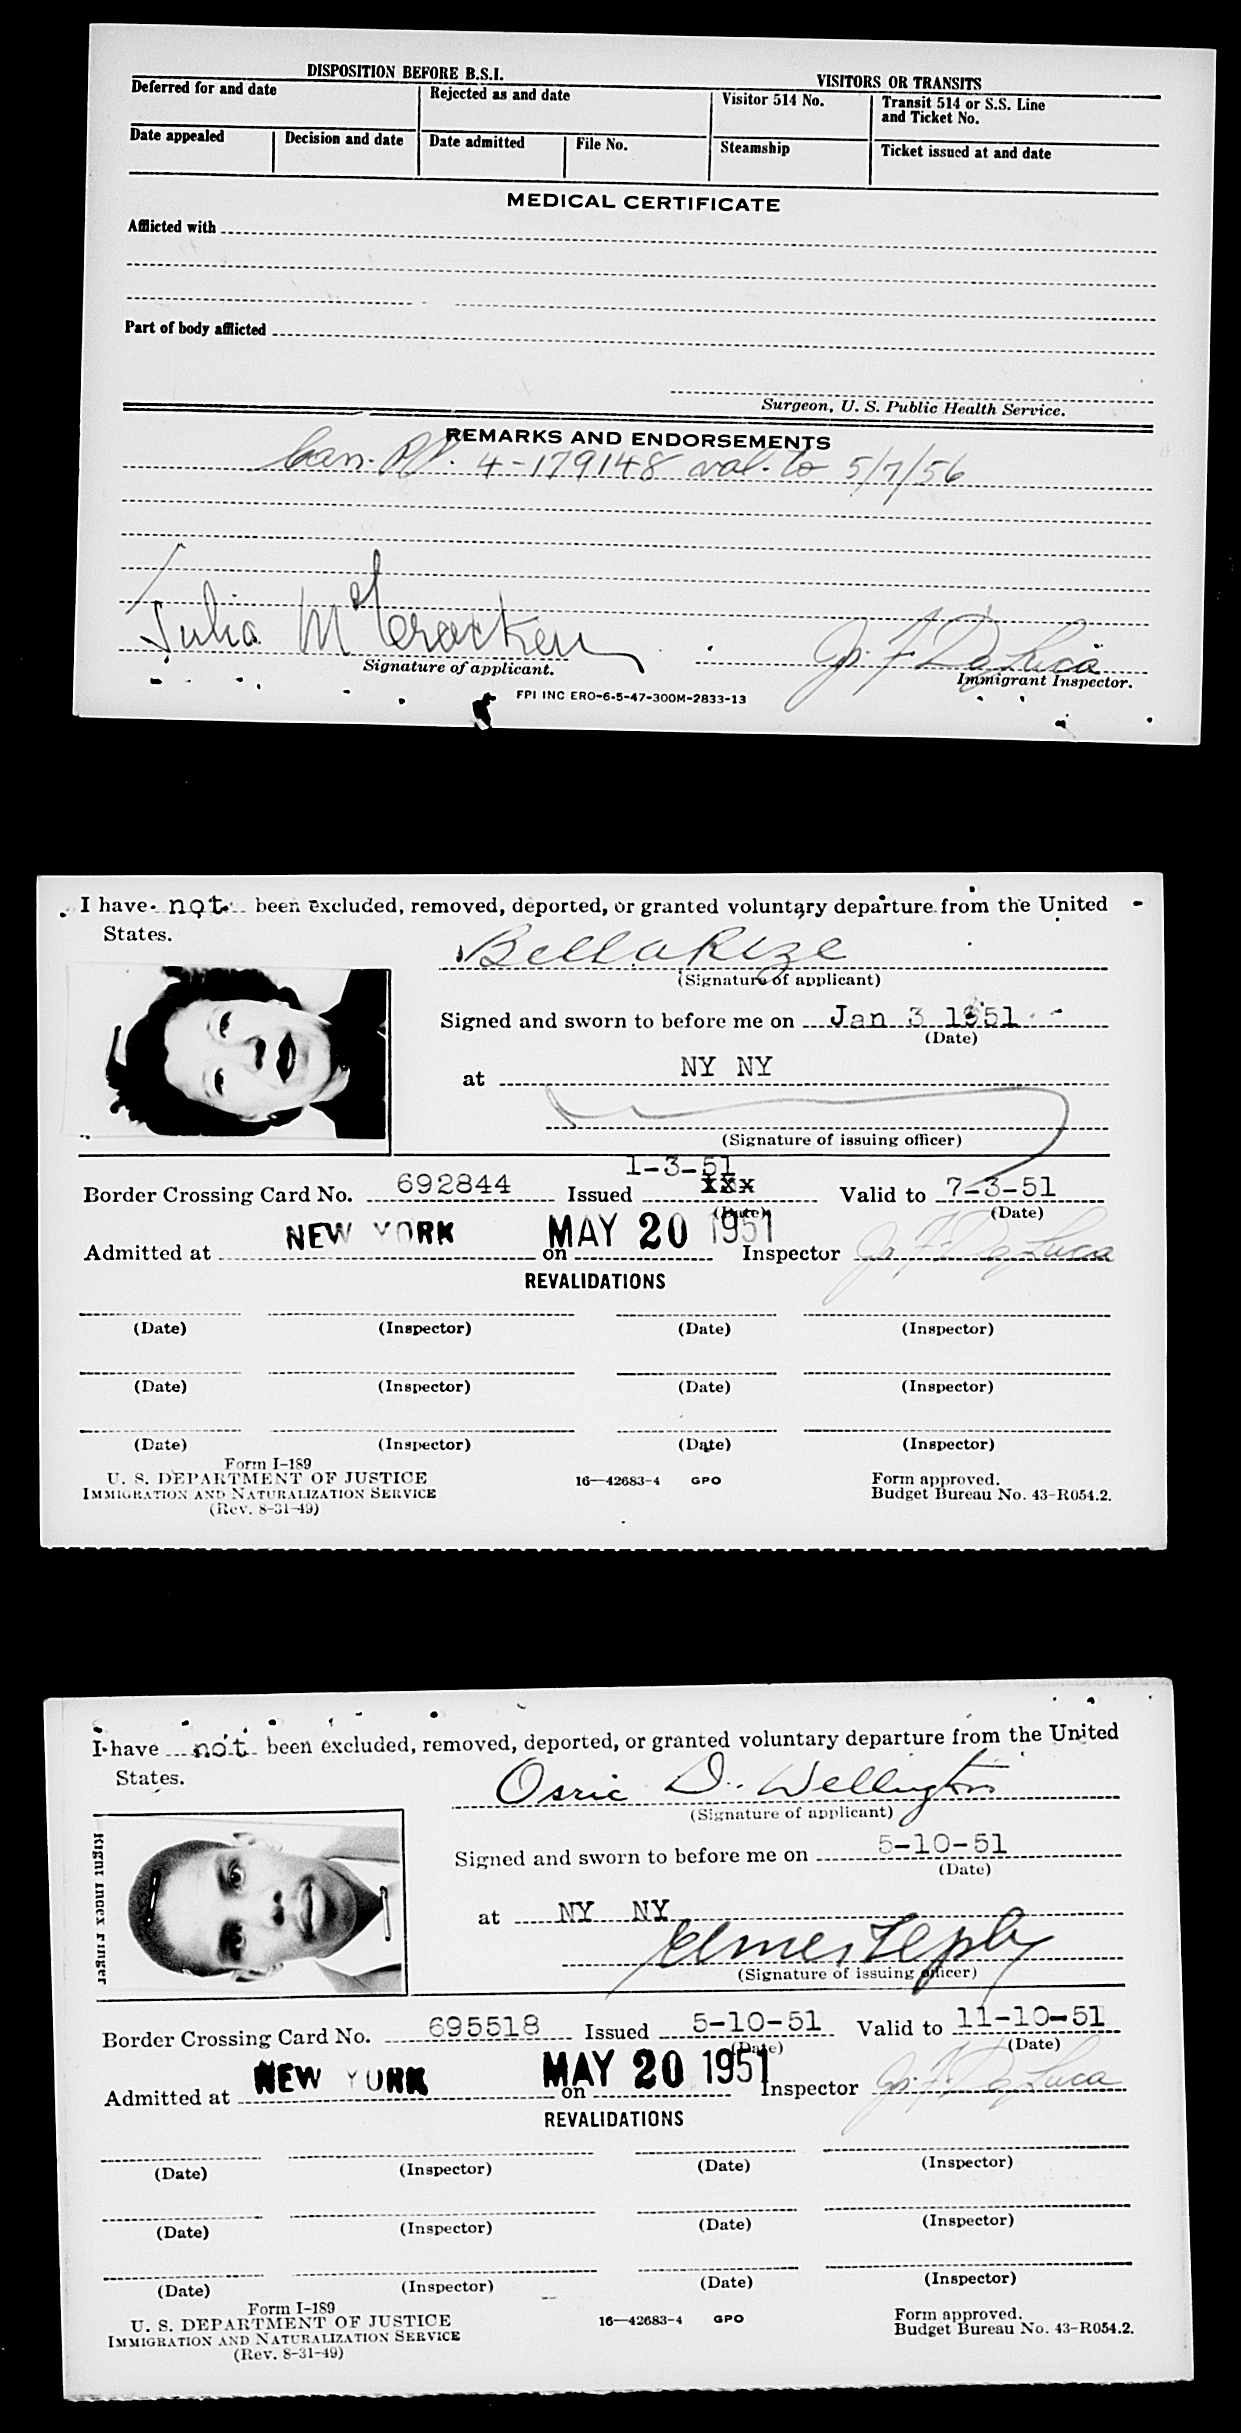 DISPOSITION BEFORE B.S.I.
VISITORS OR TRANSITS
Deferred for and date
Rejected as and date
Visitor 514 No.
Transit 514 or S.S. Line
and Ticket No.
Date appealed
Decision and date
Date admitted
File No.
Steamship
Ticket issued at and date
MEDICAL CERTIFICATE
Afflicted with
Part of body afflicted
Surgeon, U. S. Public Health Service.
REMARKS AND ENDORSEMENTS
Can. PP. 4-179148 val. to 5/7/56
Julia McCracken
Signature of applicant.
Immigrant Inspector.
FPI INC ERO-6-5-47-300M-2833-13
I have not been excluded, removed, deported, or granted voluntary departure from the United
States.
Bella Rize
(Signature of applicant)
Signed and sworn to before me on Jan 3 1951
(Date)
at NY NY
(Signature of issuing officer)
1-3-51
Border Crossing Card No. 692844 Issued xxx Valid to 7-3-51
(Date)
(Date)
Admitted at NEW YORK on MAY 20 1951 Inspector Jo. F. Da Luca
REVALIDATIONS
(Date) (Inspector) (Date) (Inspector)
(Date) (Inspector) (Date) (Inspector)
(Date) (Inspector) (Date) (Inspector)
Form I-189
U. S. DEPARTMENT OF JUSTICE
IMMIGRATION AND NATURALIZATION SERVICE
(Rev. 8-31-49)
16—42683-4 GPO
Form approved.
Budget Bureau No. 43-R054.2.
I have not been excluded, removed, deported, or granted voluntary departure from the United
States.
Osric D. Wellington
(Signature of applicant)
Right Index Finger
Signed and sworn to before me on 5-10-51
(Date)
at NY NY
(Signature of issuing officer)
Border Crossing Card No. 695518 Issued 5-10-51 Valid to 11-10-51
(Date)
(Date)
Admitted at NEW YORK on MAY 20 1951 Inspector Jo. F. Da Luca
REVALIDATIONS
(Date) (Inspector) (Date) (Inspector)
(Date) (Inspector) (Date) (Inspector)
(Date) (Inspector) (Date) (Inspector)
Form I-189
U. S. DEPARTMENT OF JUSTICE
IMMIGRATION AND NATURALIZATION SERVICE
(Rev. 8-31-49)
16—42683-4 GPO
Form approved.
Budget Bureau No. 43-R054.2.